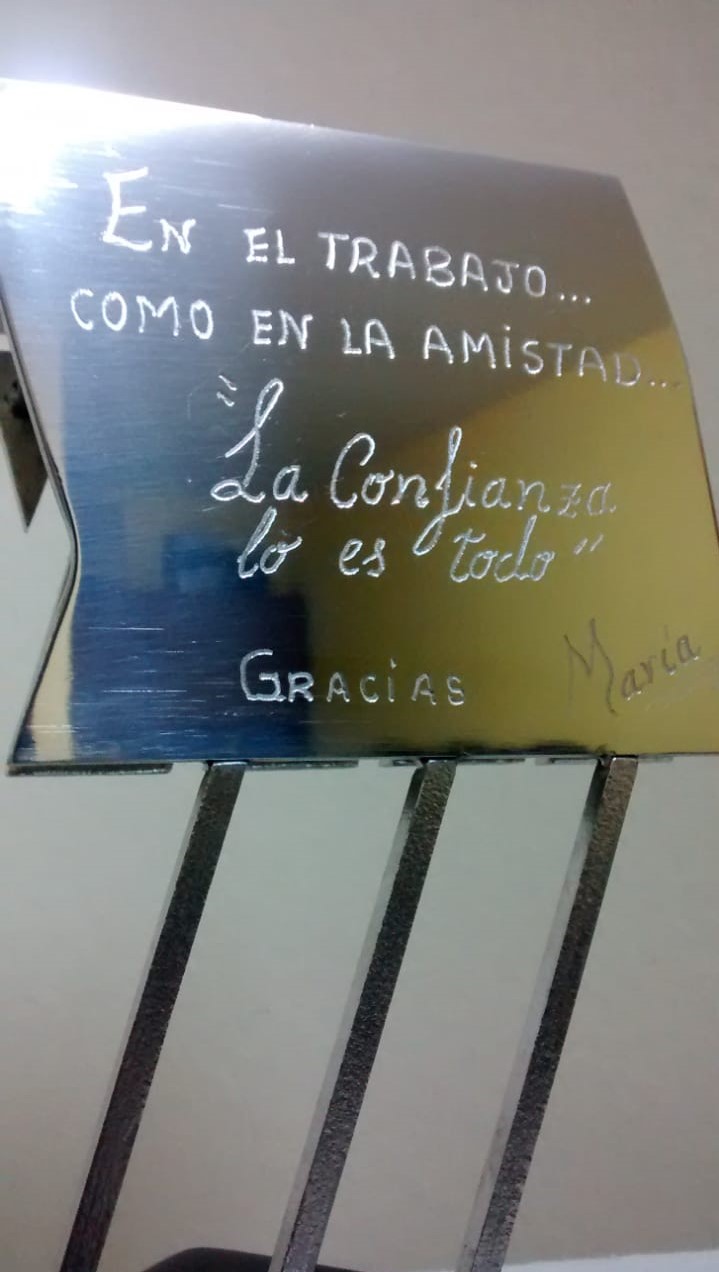 EN EL TRABAJO...
COMO EN LA AMISTAD...
"La Confianza
lo es todo"
GRACIAS
María